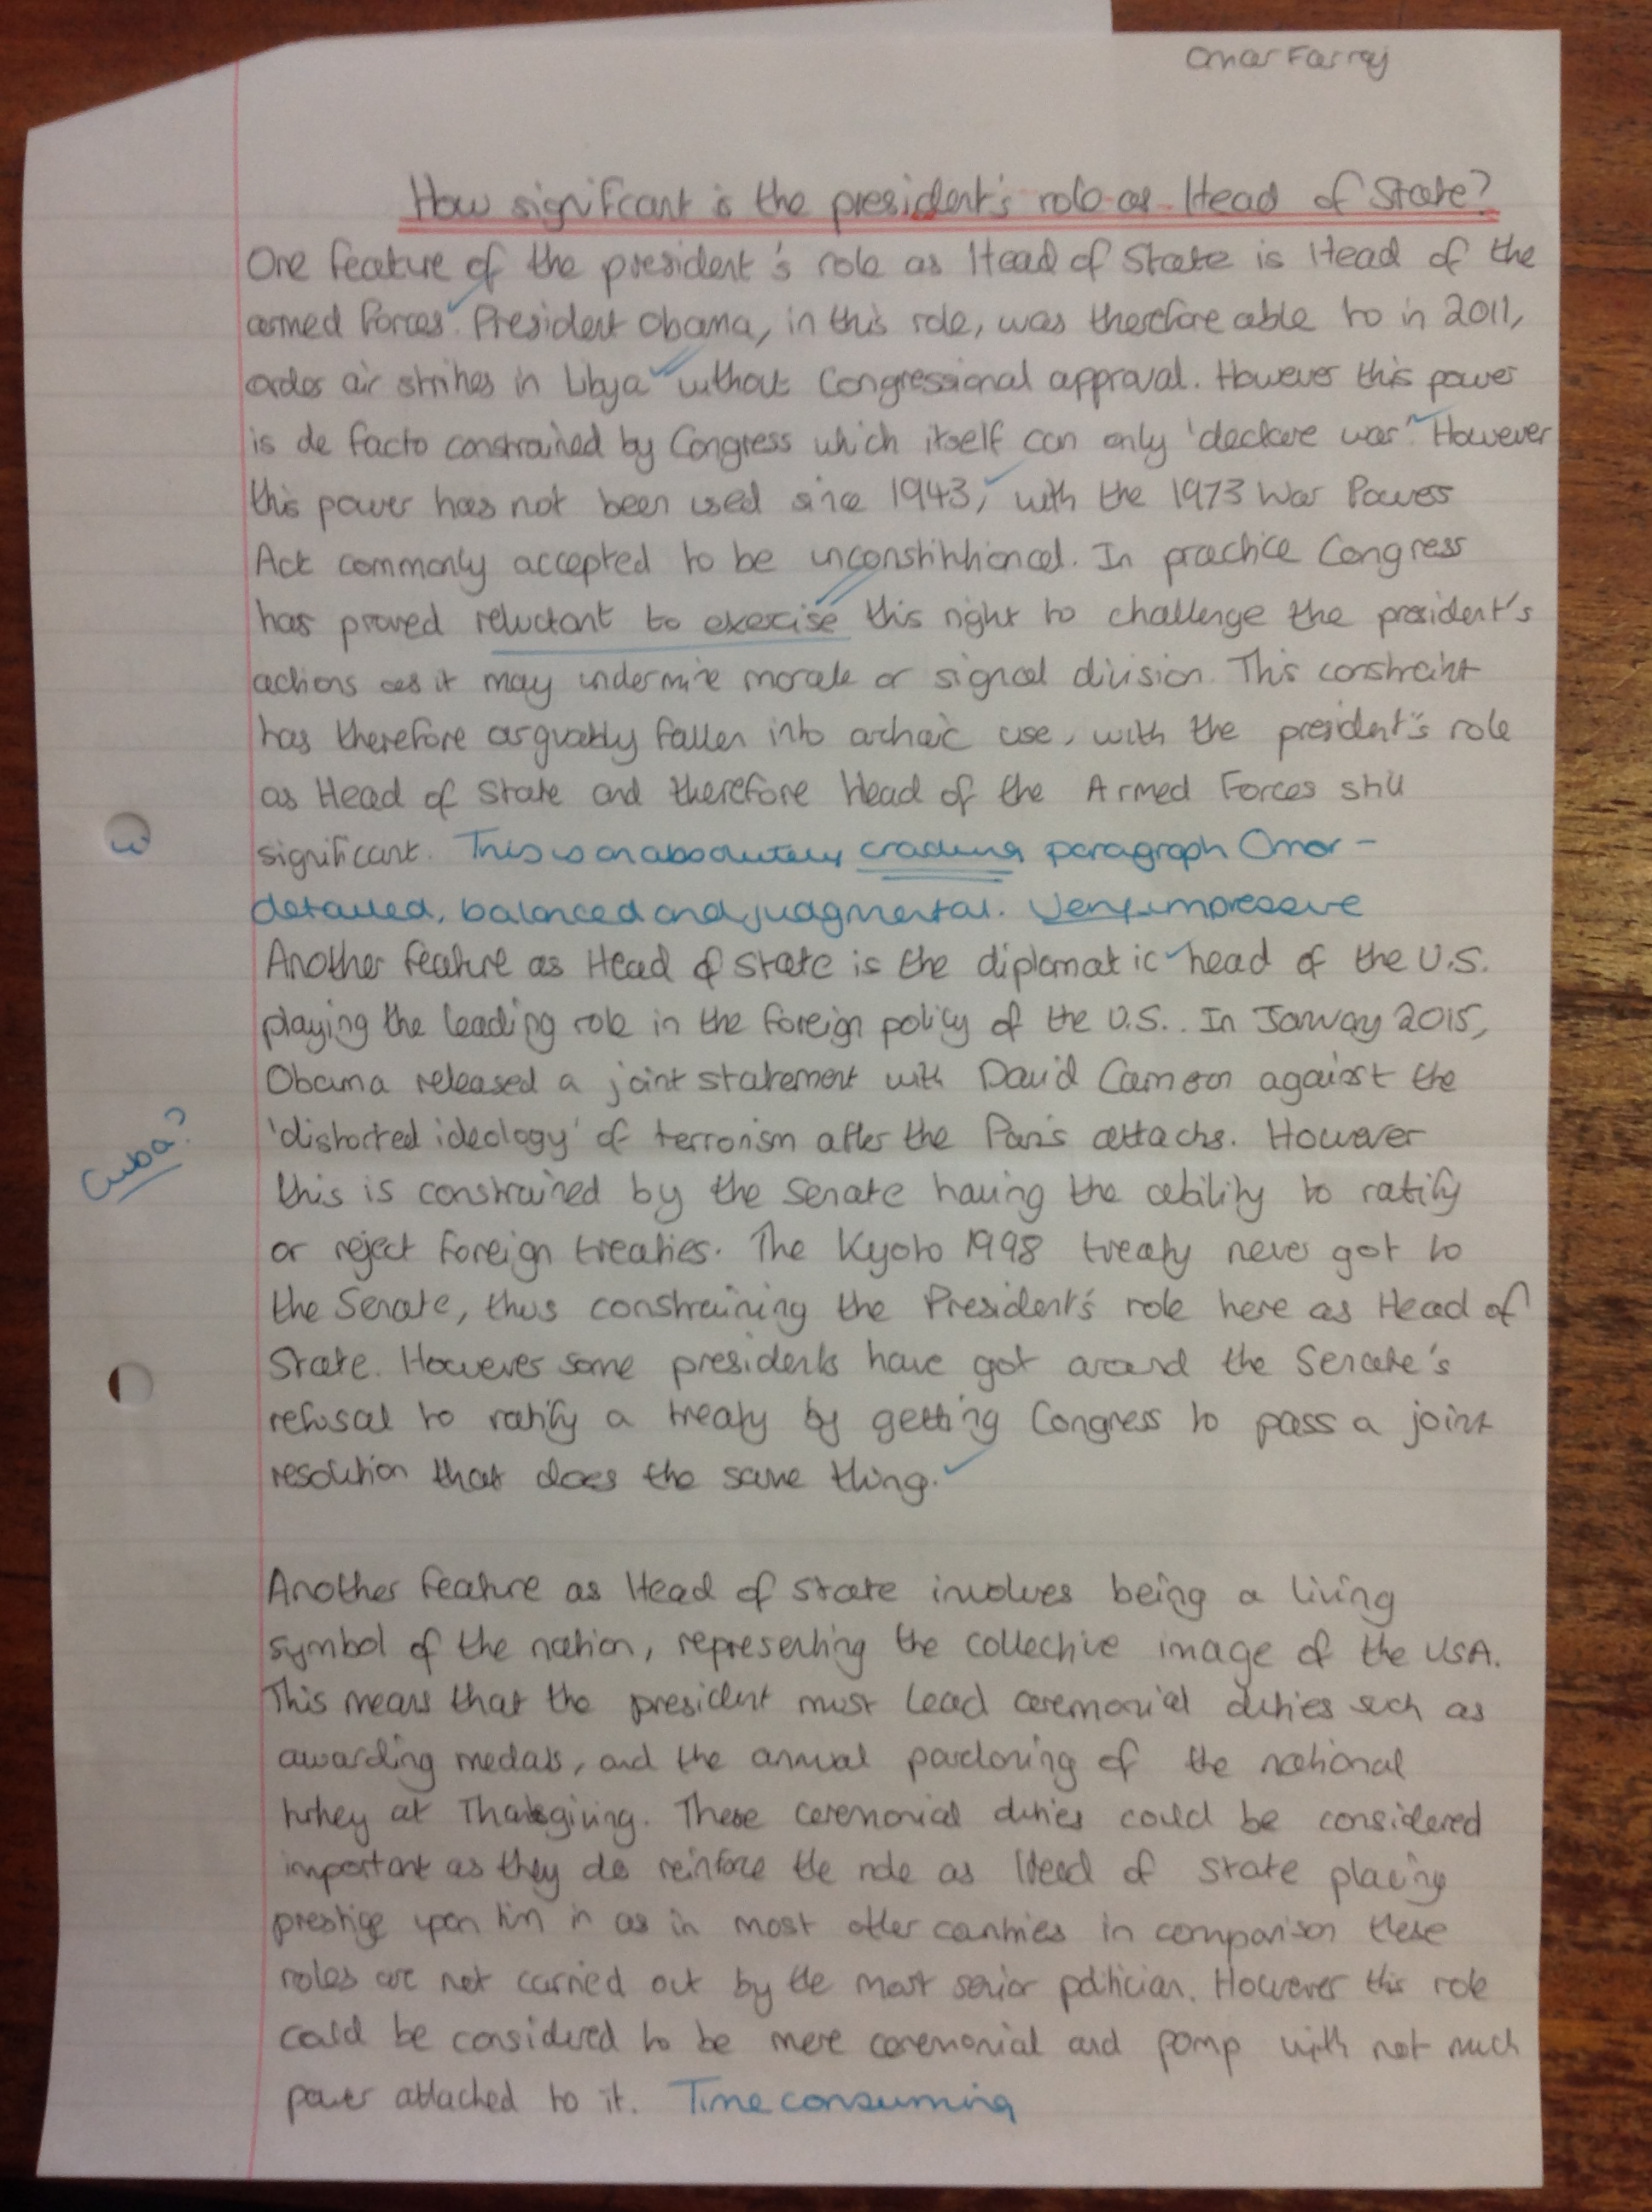 Omar Farraj
How significant is the president's role as Head of State?
One feature of the president's role as Head of State is Head of the
armed forces. President Obama, in this role, was therefore able to in 2011,
order air strikes in Libya without Congressional approval. However this power
is de facto constrained by Congress which itself can only 'declare war'. However
this power has not been used since 1943, with the 1973 War Powers
Act commonly accepted to be unconstitutional. In practice Congress
has proved reluctant to exercise this right to challenge the president's
actions as it may undermine morale or signal division. This constraint
has therefore arguably fallen into archaic use, with the president's role
as Head of State and therefore Head of the Armed Forces still
significant. This is an absolutely cracking paragraph Omar -
detailed, balanced and judgmental. Very impressive
Another feature as Head of State is the diplomatic head of the U.S.
playing the leading role in the foreign policy of the U.S.. In January 2015,
Obama released a joint statement with David Cameron against the
'distorted ideology' of terrorism after the Paris attacks. However
Cuba?
this is constrained by the Senate having the ability to ratify
or reject foreign treaties. The Kyoto 1998 treaty never got to
the Senate, thus constraining the President's role here as Head of
State. However some presidents have got around the Senate's
refusal to ratify a treaty by getting Congress to pass a joint
resolution that does the same thing.
Another feature as Head of State involves being a living
symbol of the nation, representing the collective image of the USA.
This means that the president must lead ceremonial duties such as
awarding medals, and the annual pardoning of the national
turkey at Thanksgiving. These ceremonial duties could be considered
important as they do reinforce the role as Head of State placing
prestige upon him in as in most other countries in comparison these
roles are not carried out by the most senior politician. However this role
could be considered to be mere ceremonial and pomp with not much
power attached to it. Time consuming